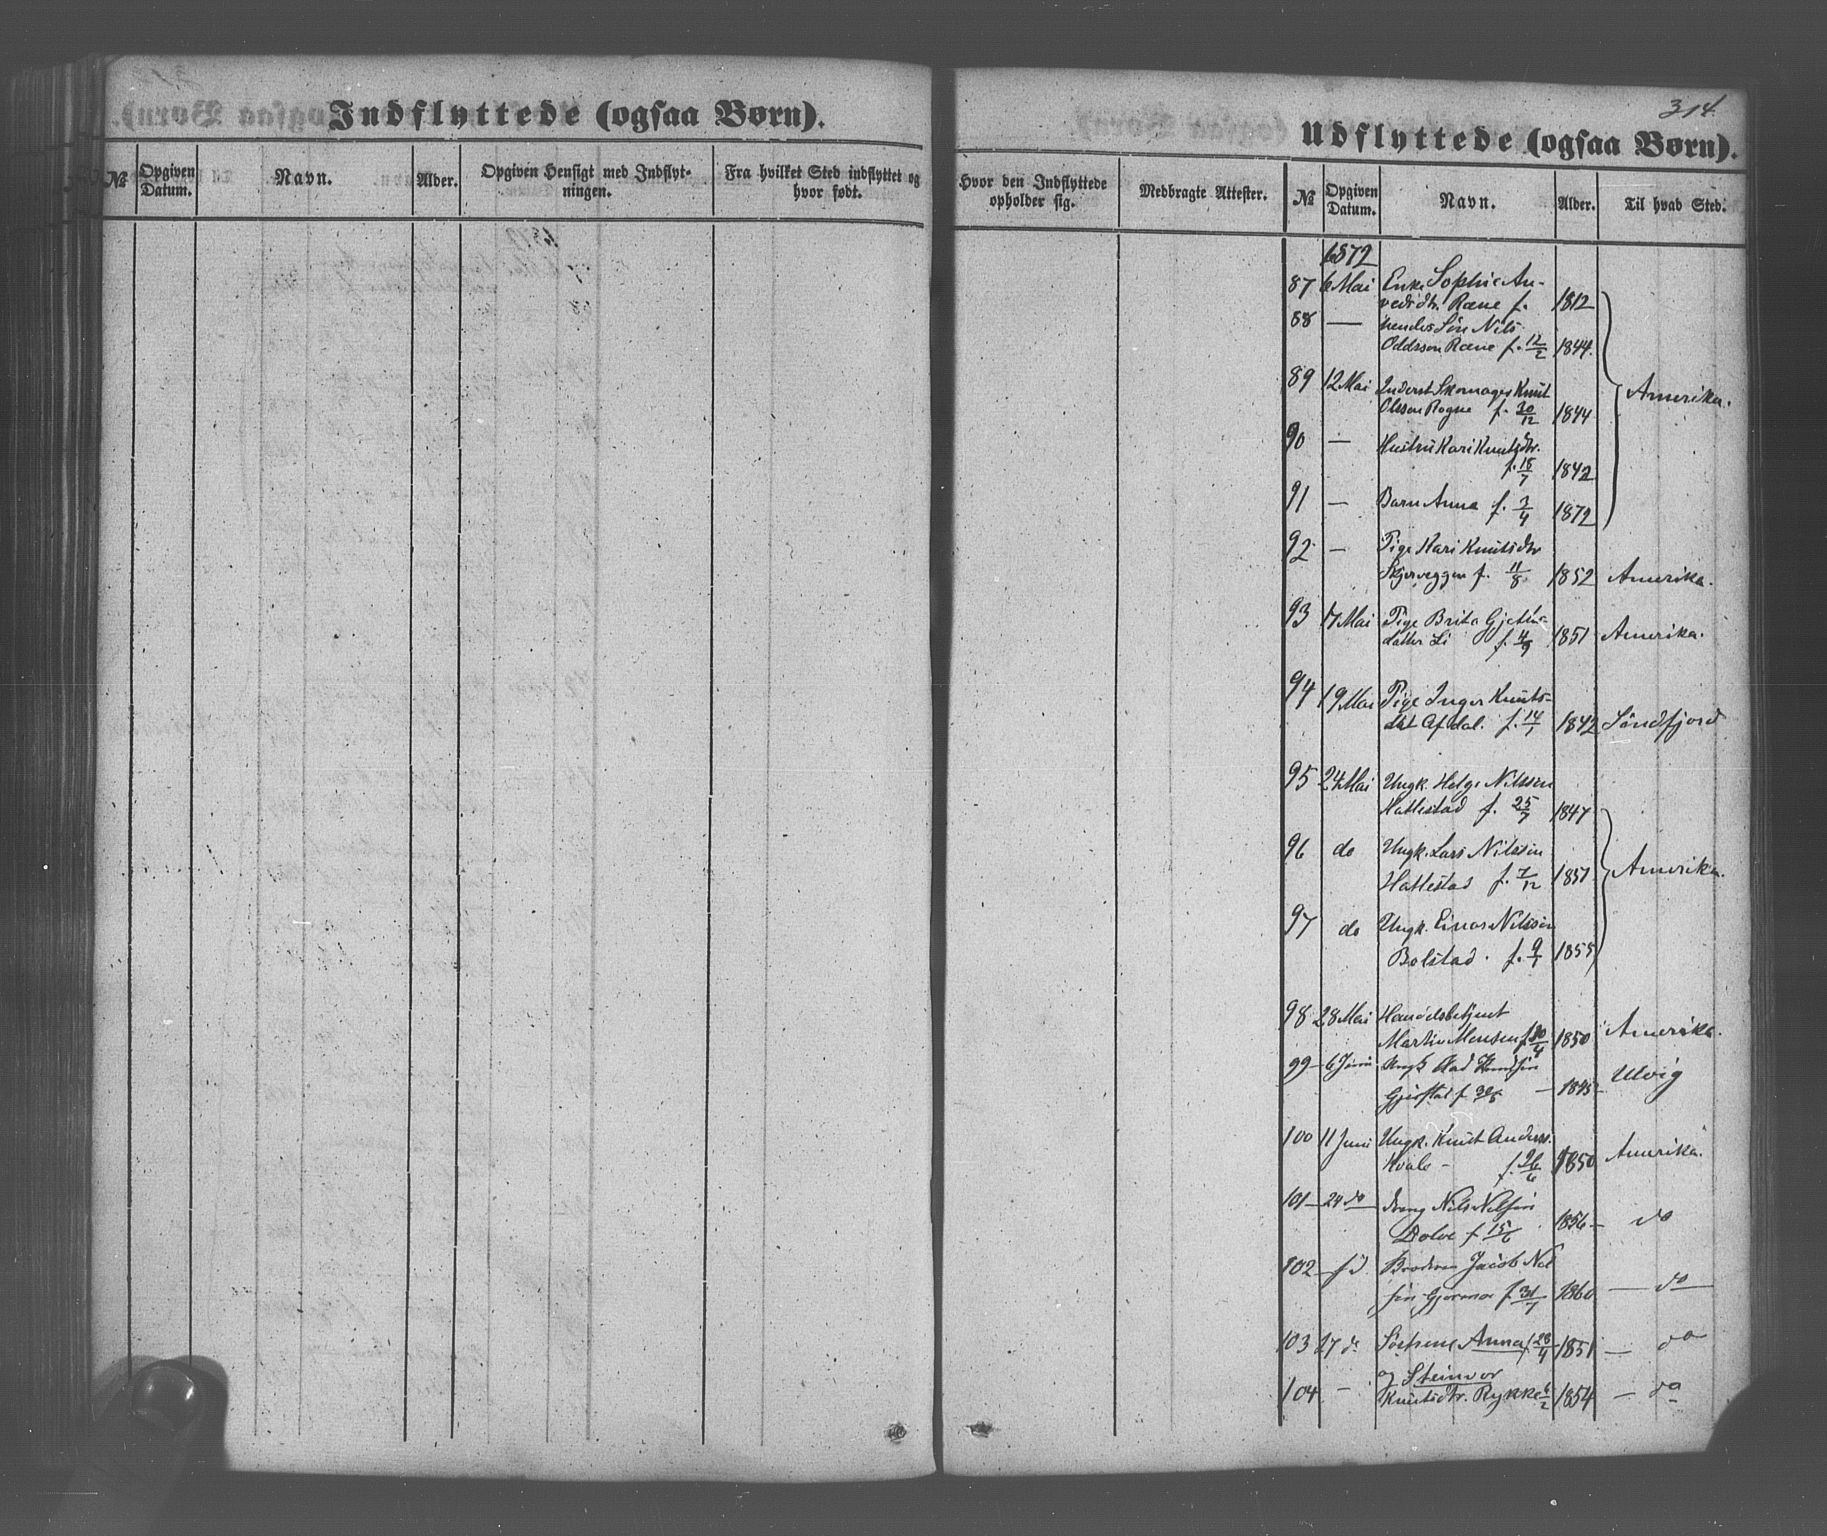 Indflyttede (ogsaa Børn).
№
Opgiven Datum.
Navn.
Alder.
Opgiven Hensigt med Indflyt-
ningen.
Fra hvilket Sted indflyttet og
hvor født.
314
Udflyttede (ogsaa Børn).
Hvor den Indflyttede
opholder sig.
Medbragte Attester.
№
Opgiven Datum.
Navn.
Alder.
Til hvad Sted.
1872
87 6 Mai Enke Sophie An-
vedsdtr. Ræne f. 1812
88 — hendes Søn Nils
Oddsson Ræne f. 12/2 1844.
89 12 Mai Inderst Skomager Knut
Olsson Rogne f. 30/12 1844 Amerika.
90 — Hustru Kari Knutsdtr.
f. 18/7 1842
91 — Barn Anna f. 3/4 1872
92 — Pige Kari Knutsdtr
Skjerveggen f. 11/8 1852 Amerika.
93 17 Mai Pige Brita Gjetins-
datter Li f. 4/9 1851 Amerika.
94 19 Mai Pige Inger Knuts-
dtr Afdal. f. 14/7 1842 Søndfjord
95 24 Mai Ungk. Helge Nilssøn
Hattestad f. 25/7 1847
96 do Ungk. Lars Nilssøn
Hattestad f. 7/12 1851 Amerika.
97 do Ungk. Einar Nilssøn
Bolstad. f. 9/7 1855
98 28 Mai Handelsbetjent
Martin Monsen f. 30/4 1850 Amerika.
99 — 6 Juni Ungk Knudsøn
f — 1845 — Ulvig
100 11 Juni Ungk. Knut Anders.
Hvale — f. 26/6 1850 Amerika.
101 — 24 do — dreng Nils Nilsøn
Dolve f 15/6 1856 — do
102 — Broderen Jacob Nil
søn Gjerme f 31/7 1860 — do —
103 27 d. Søstrene Anna f 28/4 1851 — do
og Steinvor
104. — Knutsdtr. Rykke 6/2 1854 — do